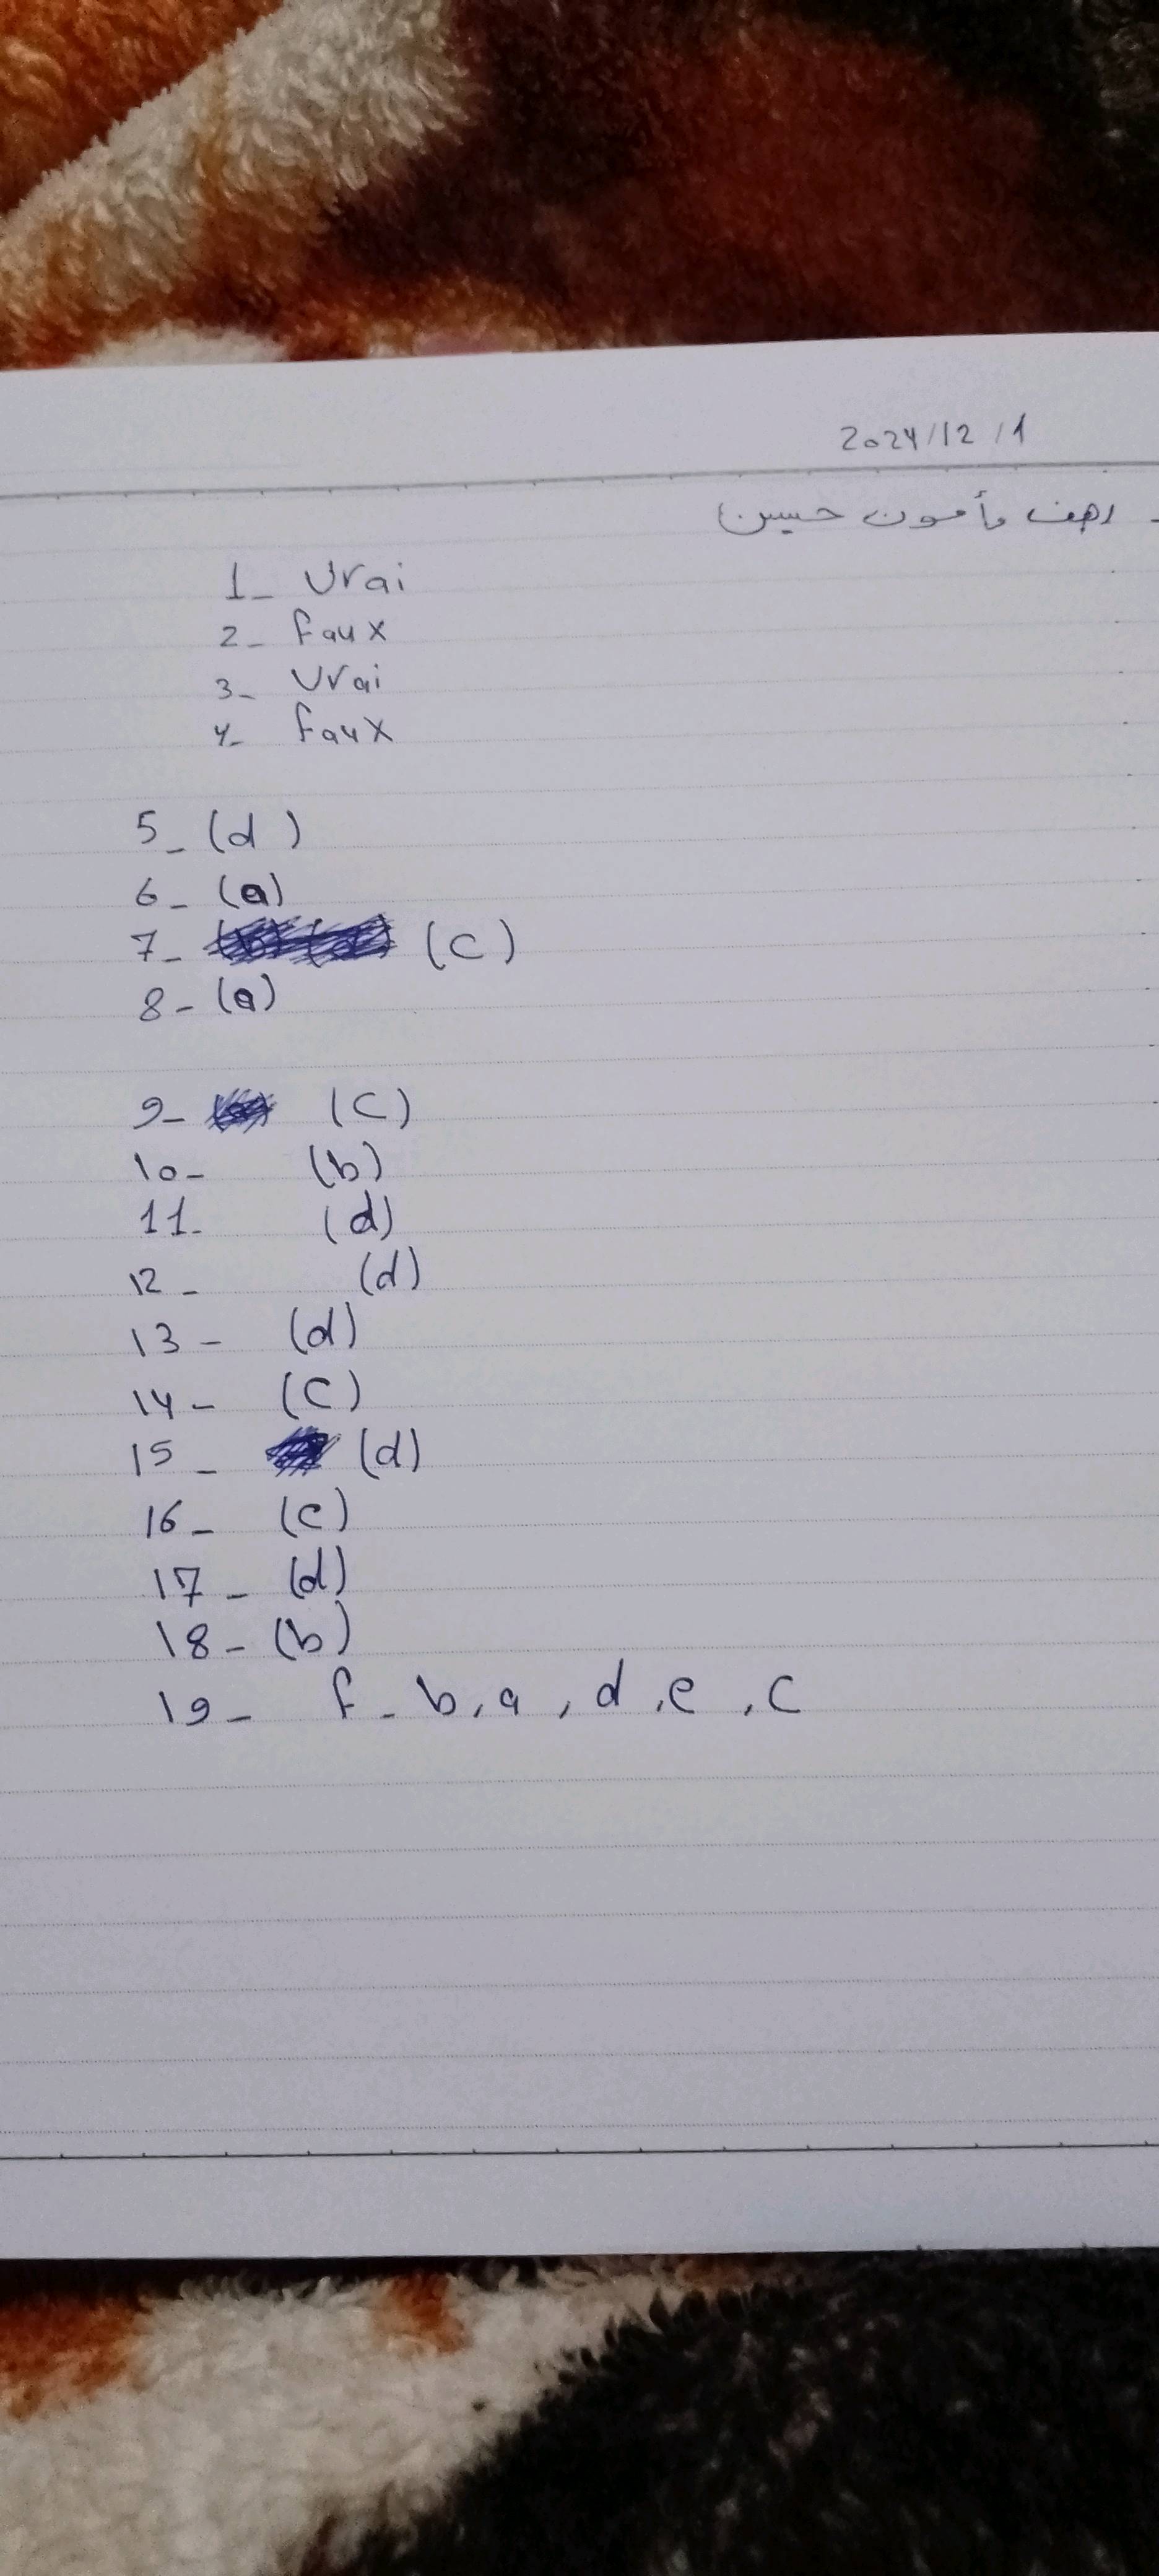 2024/12/1
رهف مأمون حسين
1_ Vrai
2_ faux
3_ Vrai
4_ faux
5_ (d)
6_ (a)
7_ (C)
8- (a)
9- (C)
10- (b)
11- (d)
12- (d)
13- (d)
14- (C)
15_ (d)
16_ (c)
17_ (d)
18- (b)
19_ f - b, a, d, e, c